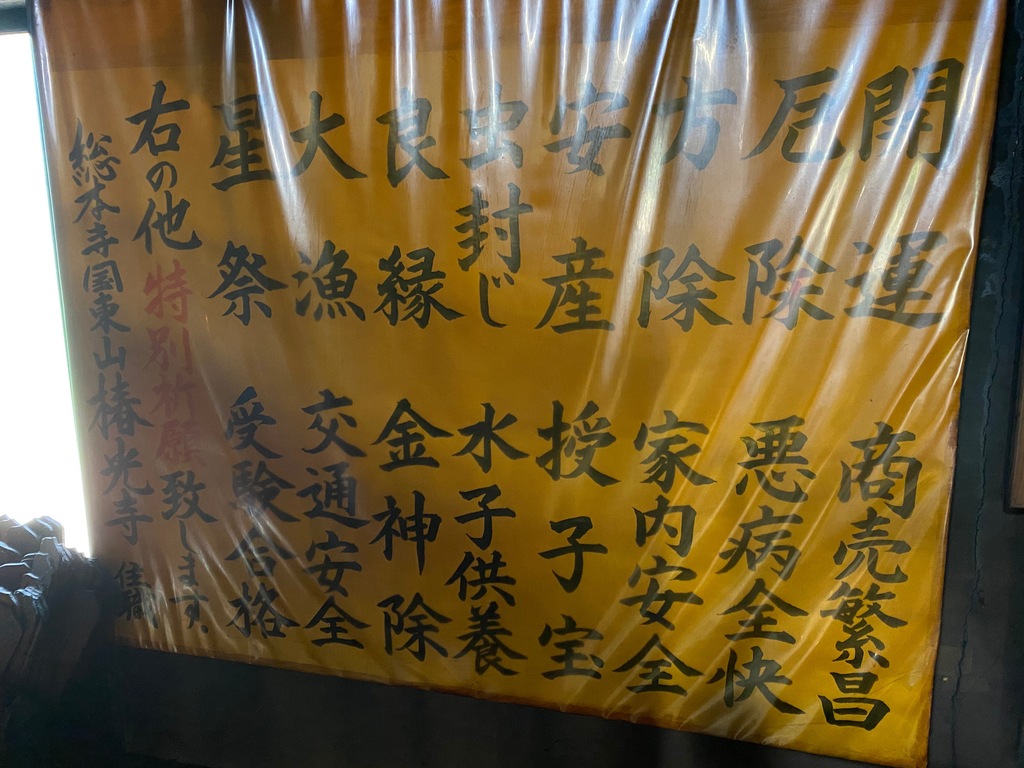 開運 商売繁昌
厄除 悪病全快
方除 家内安全
安産 授子宝
虫封じ 水子供養
良縁 金神除
大漁 交通安全
星祭 受験合格
右の他特別祈願致します。
総本寺国東山椿光寺 住職